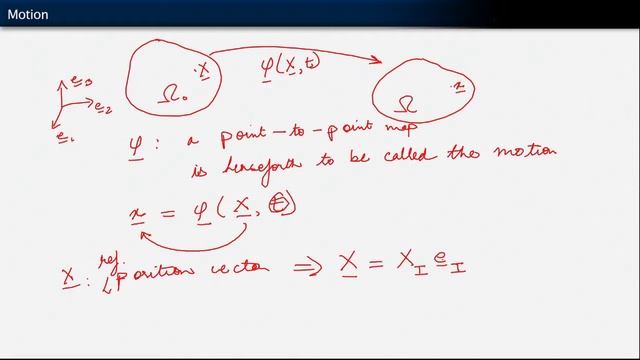 Motion
e₃
e₂
e₁
.X
Ω₀
φ(X, t)
Ω
.x
φ : a point-to-point map
is henceforth to be called the motion
x = φ(X, t)
ref.
X : position vector ⇒ X = X_I e_I